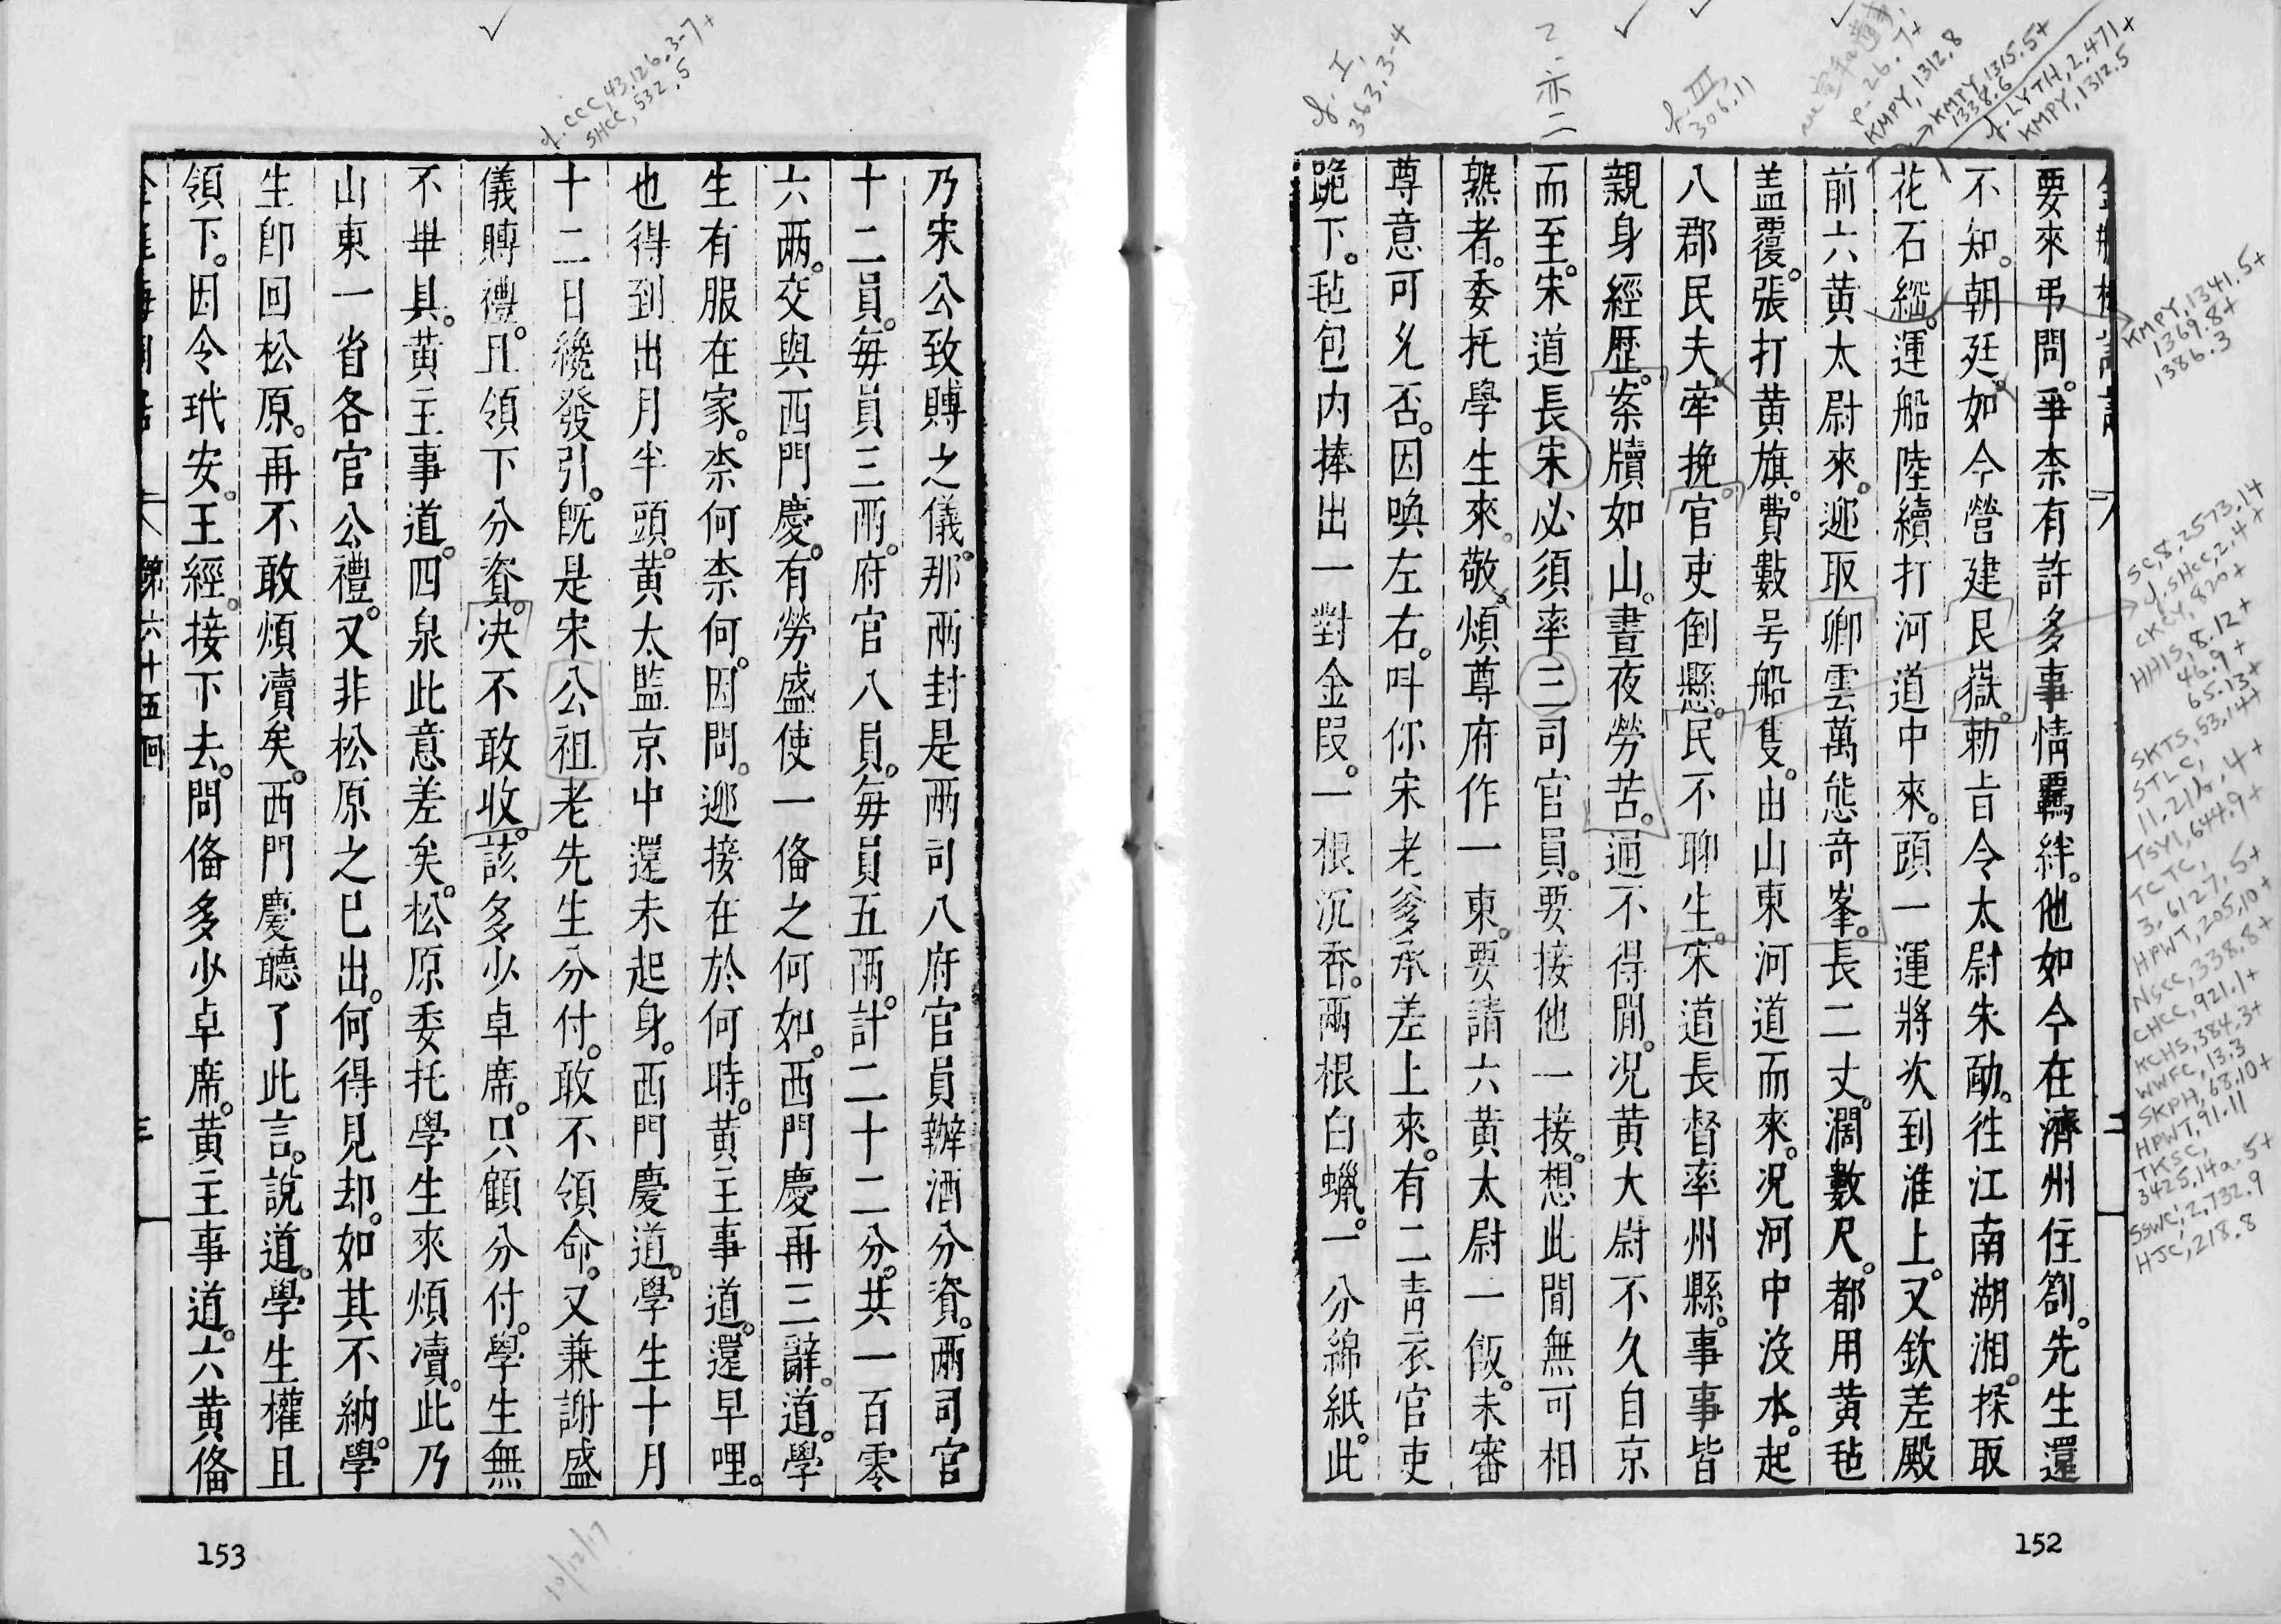 要來弔問。爭柰有許多事情覊絆。他如今在濟州住劄。先生還
不知。朝廷如今營建艮嶽。勅旨令太尉朱勔。徃江南湖湘。採取
花石綱。運船陸續打河道中來。頭一運將次到淮上。又欽差殿
前六黃太尉來。迎取卿雲萬態奇峯。長二丈。濶數尺。都用黃毡
盖覆。張打黃旗。費數号船隻。由山東河道而來。况河中没水。起
八郡民夫牽挽。官吏倒懸。民不聊生。宋道長督率州縣。事事皆
親身經歷。案牘如山。晝夜勞苦。通不得閒。况黃大尉不久自京
而至。宋道長宋必須率三司官員。要接他一接。想此間無可相
熟者。委托學生來。敬煩尊府作一東。要請六黃太尉一飯。未審
尊意可乆否。因喚左右。呌你宋老爹承差上來。有二靑衣官吏
跪下。毡包内捧出一對金叚。一根沉香。兩根白蠟。一分綿紙。此
152
乃宋公致賻之儀。那兩封是兩司八府官員辦酒分資。兩司官
十二員。每員三兩。府官八員。每員五兩。計二十二分。共一百零
六兩。交與西門慶。有勞盛使一俻之何如。西門慶再三辭。道。學
生有服在家。柰何柰何。因問。迎接在於何時。黃主事道。還早哩。
也得到出月半頭。黃太監京中還未起身。西門慶道。學生十月
十二日纔發引。旣是宋公祖老先生分付。敢不領命。又兼謝盛
儀賻禮。且領下分資。决不敢收。該多少卓席。只顧分付。學生無
不畢具。黃主事道。四泉此意差矣。松原委托學生來煩瀆。此乃
山東一省各官公禮。又非松原之已出。何得見却。如其不納。學
生卽回松原。再不敢煩瀆矣。西門慶聽了此言。說道。學生權且
領下。因令玳安。王經。接下去。問俻多少卓席。黃主事道。六黃俻
第六十五回
三
153
✓
cf. CCC, 43, 126, 3-7+
SHCC, 532.5
cf. I,
363.3-4
亦二
cf. III
306.11
p. 26.7+
KMPY, 1312.8
KMPY, 1315.5+
1338.6
cf. LYTH, 2.471+
KMPY, 1312.5
KMPY, 1341.5+
1369.8+
1386.3
SC, 8, 2573.14
cf. SHCC, 2.4+
CKCY, 820+
HHIS, 8.12+
46.9+
65.13+
SKTS, 53.14+
STLC,
11.21b.4+
TSYI, 644.9+
TCTC,
3, 6127.5+
HPWT, 205.10+
NSCC, 338.8+
CHCC, 921.1+
KCHS, 384.3+
WWFC, 13.3
SKPH, 68.10+
HPWT, 91.11
TKSC,
3425.14a.5+
SSWC, 2.732.9
HJC, 218.8